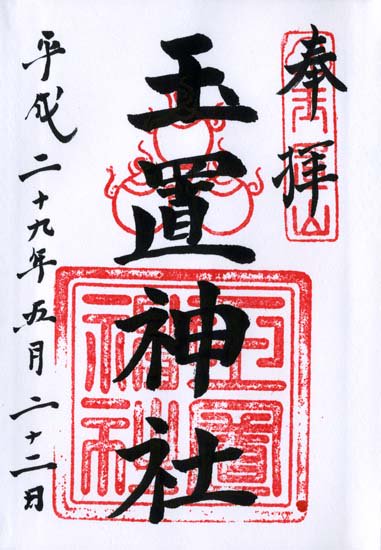 奉拝
玉置神社
平成二十九年五月二十二日